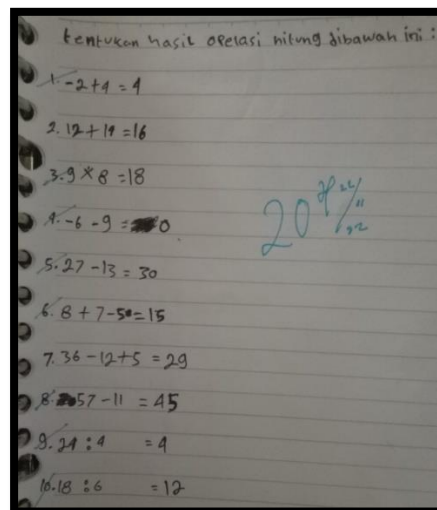 tentukan hasil operasi hitung dibawah ini :
1. -2+4 = 4
2. 12+4 =16
3. 9 × 8 =18
4. -6 - 9 = 0
5. 27 -13 = 30
6. 8 + 7-5 =15
7. 36 -12+5 = 29
8. 57 -11 = 45
9. 24 : 4 = 4
10. 18 : 6 = 12
20
22/11/22